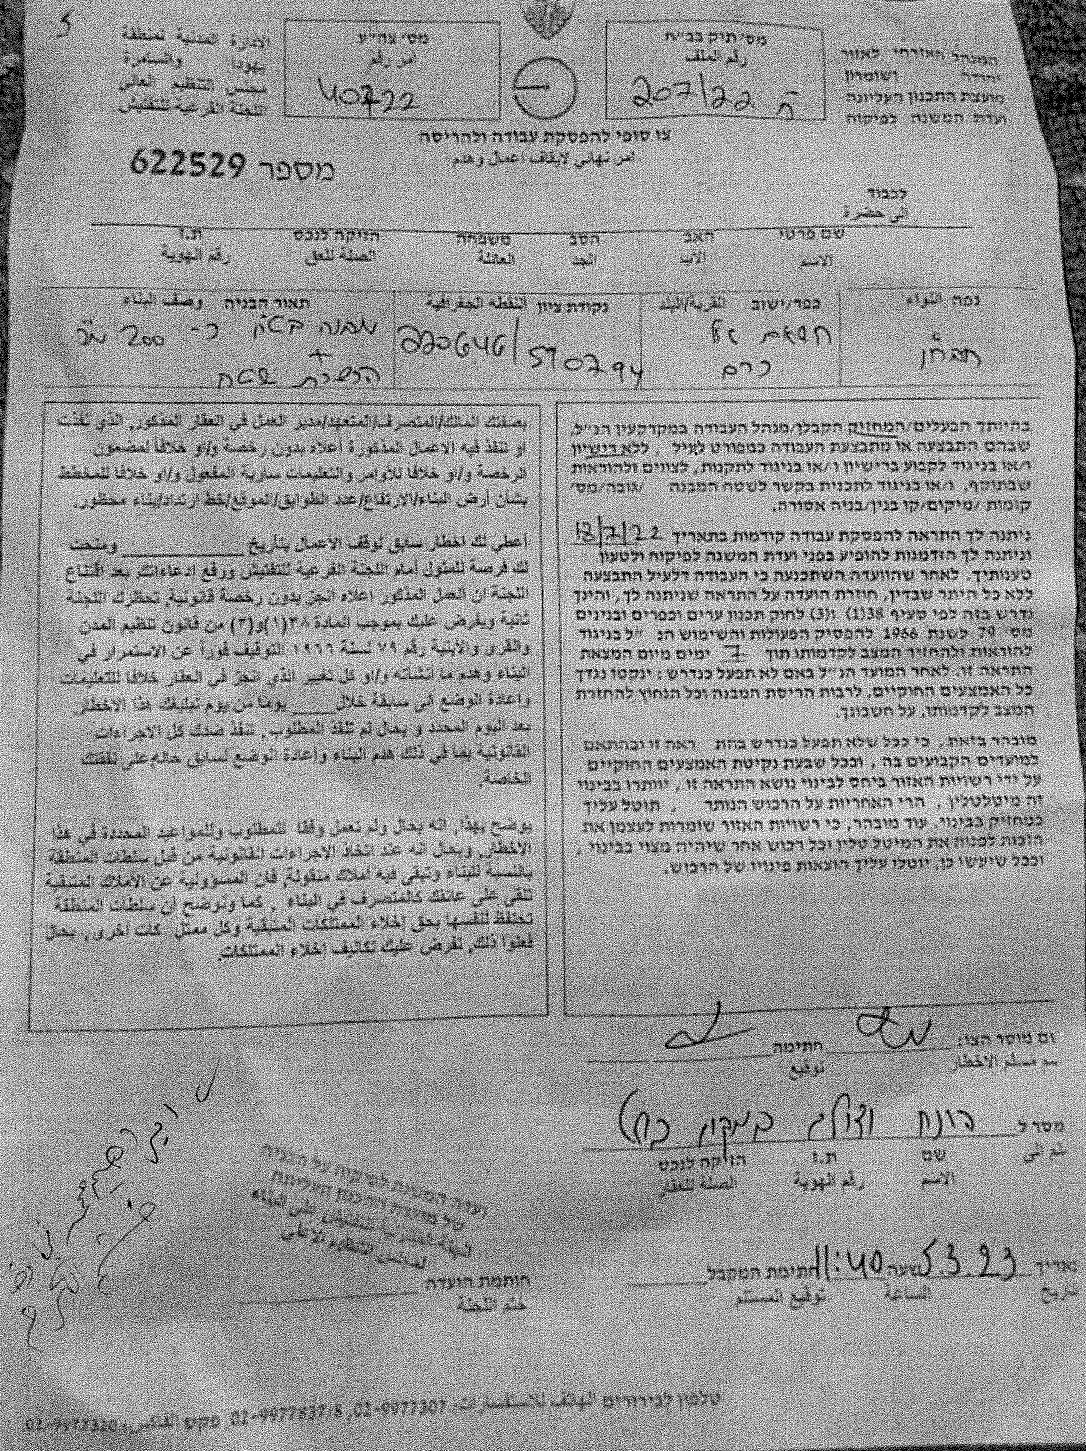 המנהל האזרחי לאזור
יהודה ושומרון
מועצת התכנון העליונה
ועדת המשנה לפיקוח
מס' תיק בב"ח
رقم الملف
ח 207/22
מס' צה"ע
امر رقم
40722
الادارة المدنية لمنطقة
يهودا والسامرة
مجلس التنظيم العالي
اللجنة الفرعية للتفتيش
צו סופי להפסקת עבודה ולהריסה
امر نهائي لايقاف اعمال وهدم
מספר 622529
לכבוד
الى حضرة
שם פרטי האב הסב משפחה הזיקה לנכס ת.ז
الاسم الاب الجد العائلة الصلة للعق رقم الهوية
נפה اللواء
כפר/ישוב القرية/البلد
כרם
נקודת ציון النقطة الجغرافية
220646/590794
תאור הבניה وصف البناء
מבנה בשטח כ- 200 מ"ר
+
הכשרת שטח
בהיותך הבעלים/המחזיק הקבלן/מנהל העבודה במקרקעין הנ"ל,
שבהם התבצעה או מתבצעת העבודה כמפורט לעיל, ללא רישיון
ו/או בניגוד לקבוע ברישיון ו/או בניגוד לתקנות, לצווים ולהוראות
שבתוקף, ו/או בניגוד לתכנית בקשר לשטח המבנה /גובה/מס'
קומות /מיקום/קו בנין/בניה אסורה.
ניתנה לך התראה להפסקת עבודה קודמות בתאריך 18/7/22
וניתנה לך הזדמנות להופיע בפני ועדת המשנה לפיקוח ולטעון
טענותיך. לאחר שהוועדה השתכנעה כי העבודה דלעיל התבצעה
ללא כל היתר שבדין, חוזרת הועדה על התראה שניתנה לך, והינך
נדרש בזה לפי סעיף 38(1) ו(3) לחוק תכנון ערים וכפרים ובנינים
מס' 79 לשנת 1966 להפסיק הפעולות והשימוש הנ"ל בניגוד
להוראות ולהחזיר המצב לקדמותו תוך 7 ימים מיום המצאת
התראה זו. לאחר המועד הנ"ל באם לא תפעל כנדרש: ינקטו נגדך
כל האמצעים החוקיים, לרבות הריסת המבנה וכל הנחוץ להחזרת
המצב לקדמותו, על חשבונך.
מובהר בזאת, כי ככל שלא תפעל כנדרש בהת ראה זו ובהתאם
למועדים הקבועים בה, וככל שבעת נקיטת האמצעים החוקיים
על ידי רשויות האזור ביחס לבינוי נושא התראה זו, יוותרו בבינוי
זה מיטלטלין, הרי האחריות על הרכוש הנותר, תוטל עליך
כמחזיק בבינוי. עוד מובהר, כי רשויות האזור שומרות לעצמן את
הזכות לפנות את המיטלטלין וכל רכוש אחר שיהיה מצוי בבינוי,
וככל שיעשו כן, יוטלו עליך הוצאות פינויו של הרכוש.
بصفتك المالك/المتصرف/المتعهد/مدير العمل في العقار المذكور, الذي نفذت
او تنفذ فيه الاعمال المذكورة أعلاه بدون رخصة و/او خلافا لمضمون
الرخصة و/او خلافا للاوامر والتعليمات سارية المفعول و/او خلافا للمخطط
بشأن أرض البناء/الارتفاع/عدد الطوابق/الموقع/خط ارتداد/بناء محظور.
أعطي لك اخطار سابق لوقف الاعمال بتأريخ ومنحت
لك فرصة للمثول أمام اللجنة الفرعية للتفتيش ورفع ادعاءاتك بعد اقتناع
اللجنة ان العمل المذكور اعلاه انجز بدون رخصة قانونية, تحظرك اللجنة
ثانية ويفرض عليك بموجب المادة ٣٨(١)و(٣) من قانون تنظيم المدن
والقرى والابنية رقم ٧٩ لسنة ١٩٦٦ التوقيف فورا عن الاستمرار في
البناء وهدم ما انشأته و/او كل تغيير الذي انجز في العقار خلافا للتعليمات
واعادة الوضع الى سابقة خلال يوما من يوم تبليغك هذا الاخطار
بعد اليوم المحدد و بحال لم تنفذ المطلوب, تنفذ ضدك كل الاجراءات
القانونية بما في ذلك هدم البناء واعادة الوضع لسابق حاله على نفقتك
الخاصة.
يوضح بهذا, انه بحال ولم تعمل وفقا للمطلوب وللمواعيد المحددة في هذا
الاخطار, وبحال انه عند اتخاذ الاجراءات القانونية من قبل سلطات المنطقة
بالنسبة للبناء وتبقى فيه املاك منقولة, فان المسؤولية عن الاملاك المتبقية
تلقى على عاتقك كالمتصرف في البناء, كما ونوضح أن سلطات المنطقة
تحتفظ لنفسها بحق اخلاء الممتلكات المتبقية وكل ممتل كات اخرى, بحال
فعلوا ذلك, نفرض عليك تكاليف إخلاء الممتلكات.
ום מוסר הצו: חתימה
مسلم الاخطار توقيع
מסר ל הונח וצולם במקום
שם ת.ז הזיקה לנכס
الاسم رقم الهوية الصلة للعقار
תאריך 5.3.23 שעה 11:40 חתימת המקבל
تاريخ الساعة توقيع المستلم
חותמת הועדה
ختم اللجنة
טלפון לבירורים الهاتف للاستفسارات: 02-9977307, 02-9977637/8 פקס الفاكس: 02-9977320